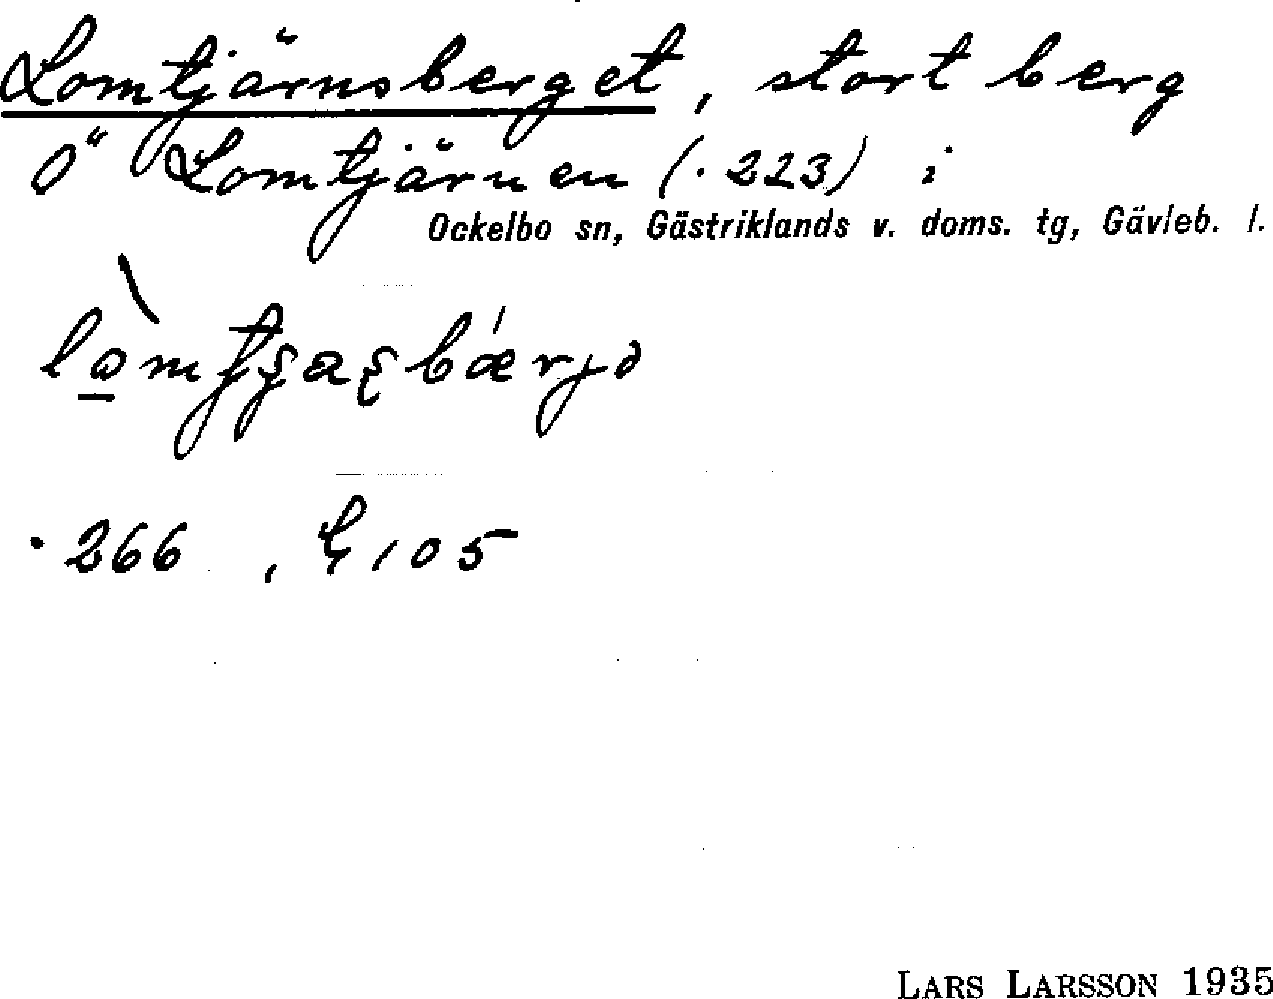 Lomtjärnsberget, stort berg
O" Lomtjärnen (.223) i
Ockelbo sn, Gästriklands v. doms. tg, Gävleb. l.
.266 , G 105
LARS LARSSON 1935